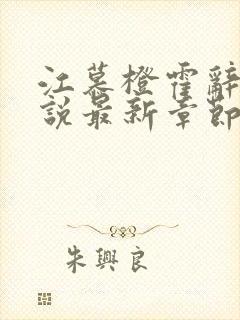 江慕橙霍辭
說最新章節
朱興良